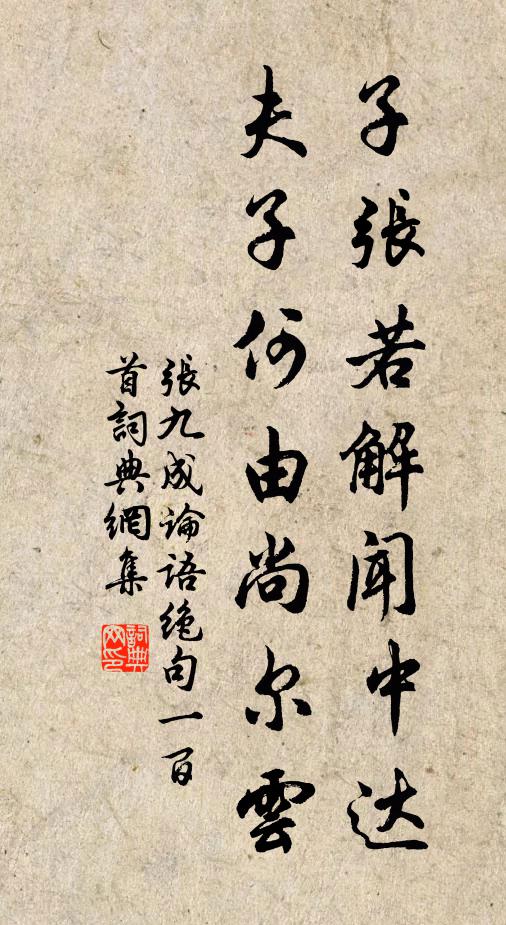 子張若解聞中达
夫子何由尚尔雲
張九成论语绝句一百
首詞典網集
詞典网印